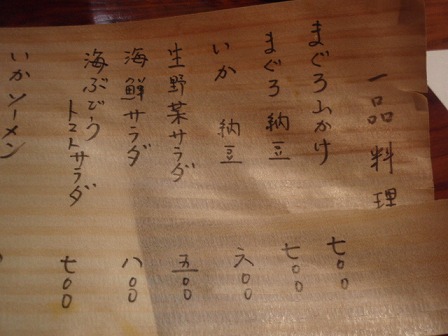 一品料理
まぐろ山かけ 七〇〇
まぐろ納豆 七〇〇
いか 納豆 六〇〇
生野菜サラダ 五〇〇
海鮮サラダ 八〇〇
海ぶどう
トマトサラダ 七〇〇
いかソーメン